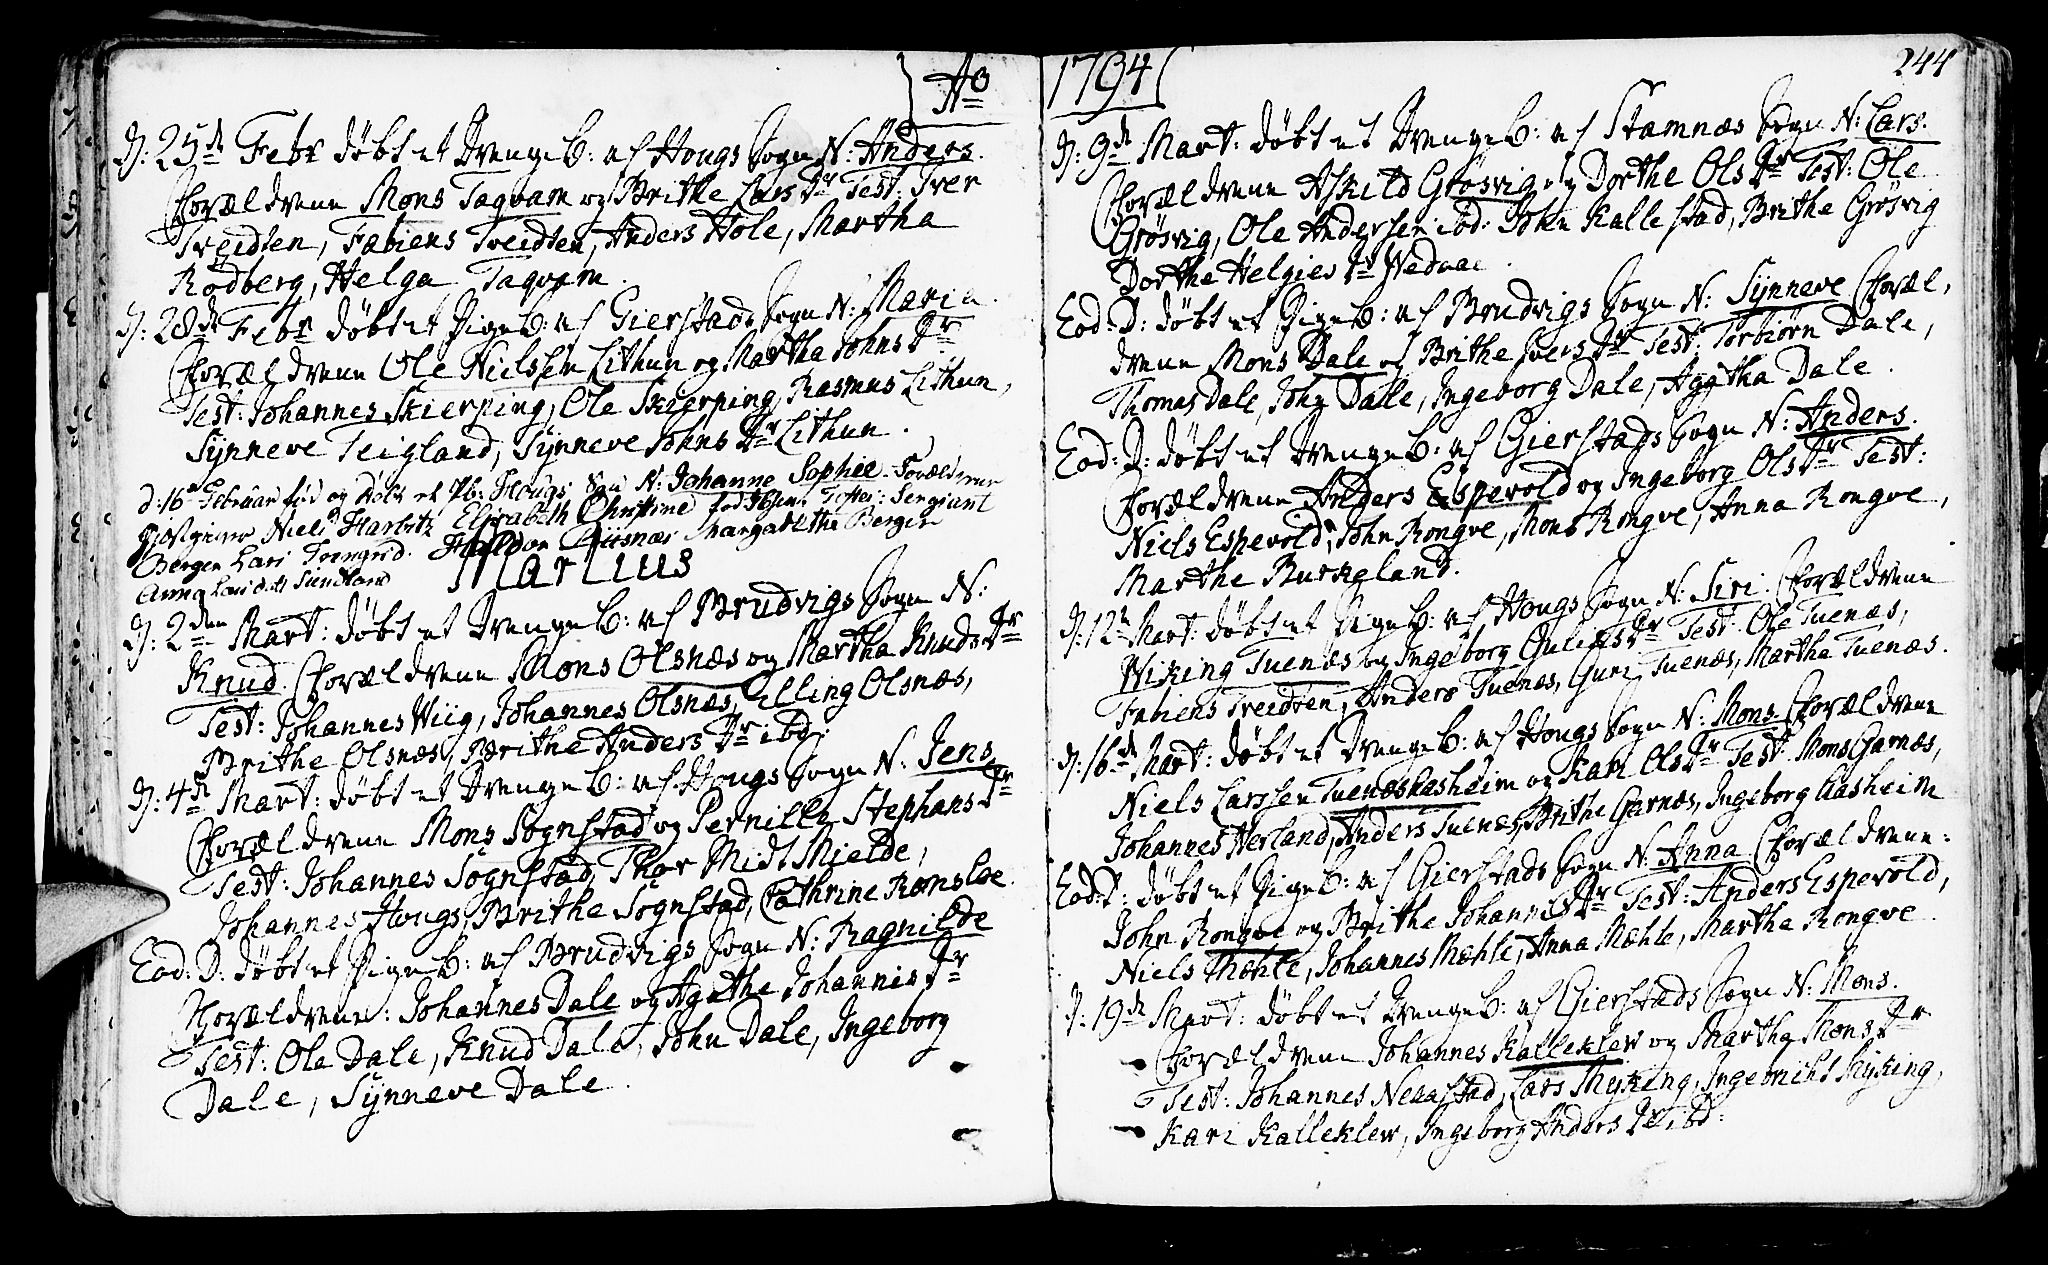 Ao
D: 25de Febr døbt et DrengeB: af Hougs Sogn N: Anders.
Forældrene Mons Taqvam og Brithe Lars Dr Test: Iver
Treidten, Fabiens Treidten, Anders Hole, Martha
Rødberg, Helga Taqvam.
D: 28de Febr døbt et PigeB: af Gierstads Sogn N: Maria.
Forældrene Ole Nielssen Lithun og Martha Johns Dr
Test: Johannes Skierping, Ole Skierping, Rasmus Lithun,
Synneve Teigland, Synneve Johns Dr Lithun.
d: 16de Februar fød og døbt et Pb: Hougs Sogn N: Johanne Sophie Forældrene
Niels Harbitz Elisabeth Christine fød Test: Sergiant
Bergen Lars Margarethe Bergen
Anna Larsdatt Sundland
Martius
D: 2den Mart: døbt et DrengeB: af Brudvigs Sogn N:
Knud. Forældrene Mons Olsnæs og Martha Knuds Dr
Test: Johannes Wiig, Johannes Olsnæs, Elling Olsnæs,
Brithe Olsnæs, Brithe Anders Dr ibd:
D: 4de Mart: døbt et DrengeB: af Hougs Sogn N: Jens
Forældrene Mons Sognstad og Pernille Stephans Dr
Test: Johannes Sognstad, Thor Midt Mielde,
Johannes Hougs, Brithe Sognstad, Cathrine Romsloe.
Eod: D: døbt et PigeB: af Brudvigs Sogn N: Ragnilde
Forældrene: Johannes Dale og Agathe Johannis Dr
Test: Ole Dale, Knud Dale, John Dale, Ingeborg
Dale, Synneve Dale.
1794
244
D: 9de Mart: døbt et DrengeB: af Stamnæs Sogn N: Lars.
Forældrene Askild Grøsvig og Dorthe Ols Dr Test: Ole
Grøsvig, Ole Andersen ibd: John Kallestad, Brithe Grøsvig
Dorthe Helgies Dr
Eod: D: døbt et PigeB: af Brudvigs Sogn N: Synneve Foræl,
drene Mons Dale og Brithe Ivers Dr Test: Torbiørn Dale,
Thomas Dale, John Dale, Ingeborg Dale, Agatha Dale.
Eod: D: døbt et DrengeB: af Gierstads Sogn N: Anders.
Forældrene Anders Espevold og Ingeborg Ols Dr Test:
Niels Espevold, John Rongve, Mons Rongve, Anna Rongve,
Marthe Burkgland.
D: 12te Mart: døbt et PigeB: af Hougs Sogn N: Siri. Forældrene
Wiking Tuenæs og Ingeborg Guliks Dr Test: Ole Tuenæs,
Fabiens Treidten, Anders Tuenæs, Guri Tuenæs, Martha Tuenæs.
D: 16de Mart: døbt et DrengeB: af Hougs Sogn N: Mons. Forældrene
Niels Larssen Tuenæs Aasheim og Kari Ols Dr Test: Mons Garnæs,
Johannes Herland, Anders Tuenæs, Brithe Garnæs, Ingeborg Aasheim
Eod: D: døbt et PigeB: af Gierstads Sogn N: Anna Forældrene:
John Rongve og Brithe Johannis Dr Test: Anders Espevold,
Niels Mæhle, Johannes Mæhle, Anna Mæhle, Martha Rongve.
D: 19de Mart: døbt et DrengeB: af Gierstads Sogn N: Mons.
Forældrene Johannes Kalleklew og Martha Mons Dr
Test: Johannes Neaastad, Lars Myking, Ingebricht Myking,
Kari Kalleklew, Ingeborg Anders Dr ibd: